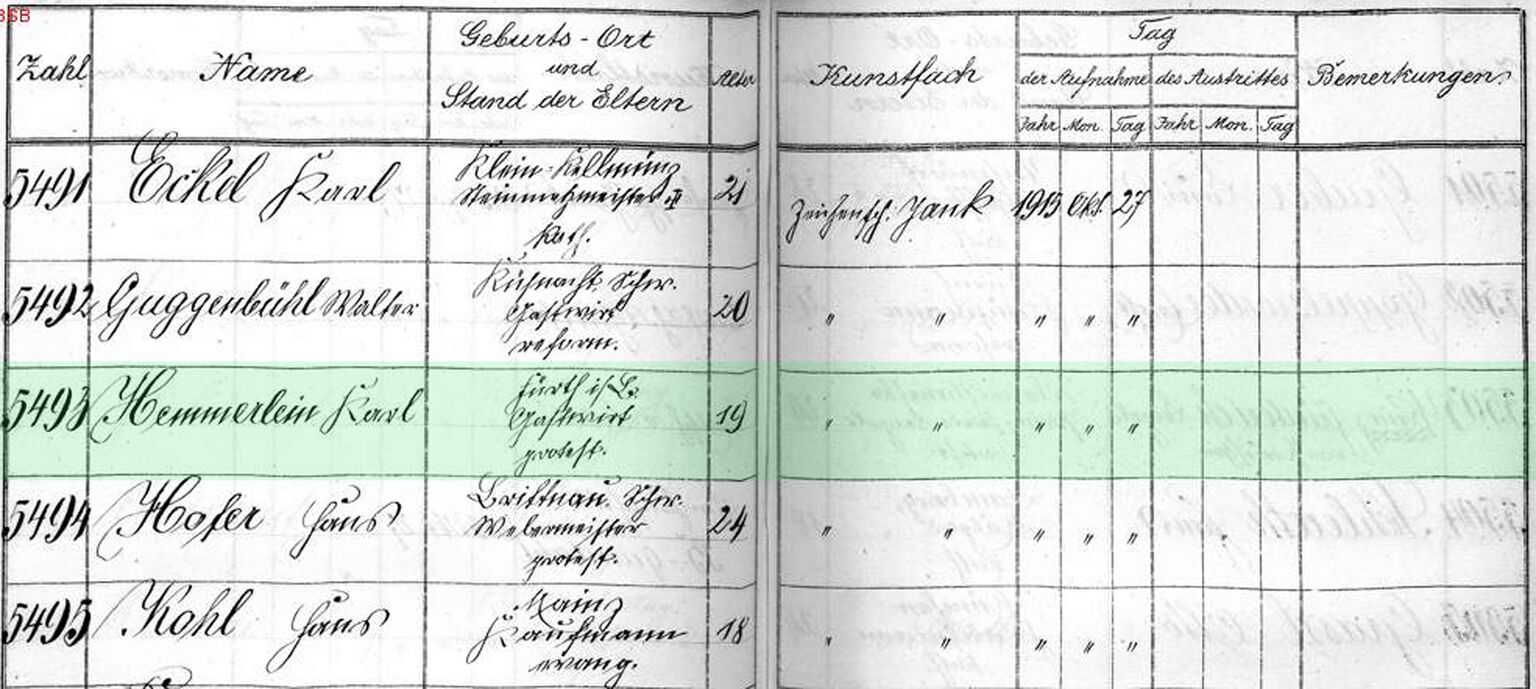 BSB
Zahl Name Geburts-Ort und Stand der Eltern Alter Kunstfach Tag Bemerkungen
der Aufnahme des Austrittes
Jahr Mon. Tag Jahr Mon. Tag
5491 Eckel Karl Klein-Kellmünz 21 Zeichensch. Jank 1915 Okt. 27
Steinmetzmeister
kath.
5492 Guggenbühl Walter Küsnacht. Schw. 20 " " " " "
Gastwirt
reform.
5493 Hemmerlein Karl Fürth i/B. 19 " " " " "
Gastwirt
protest.
5494 Hofer Hans Brittnau. Schw. 24 " " " " "
Webermeister
protest.
5495 Kohl Hans Mainz 18 " " " " "
Kaufmann
evang.